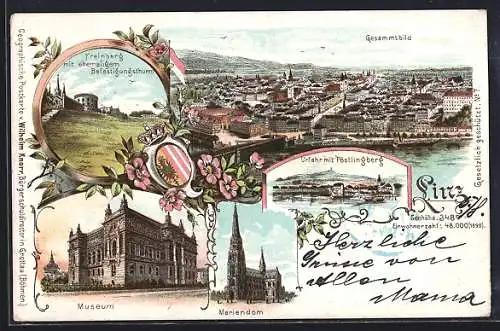 Gesammtbild
Freinberg
mit ehemaligem
Befestigungsthurm
Geographische Postkarte v. Wilhelm Knorr, Bürgerschuldirector in Grottau (Böhmen)
Gesetzlich geschützt. Nº 7
Urfahr mit Pöstlingberg
Linz
Seehöhe: 348
Einwohnerzahl: 48.000 (1899).
Herzliche
Grüsse von
Allen
Mama
Museum
Mariendom